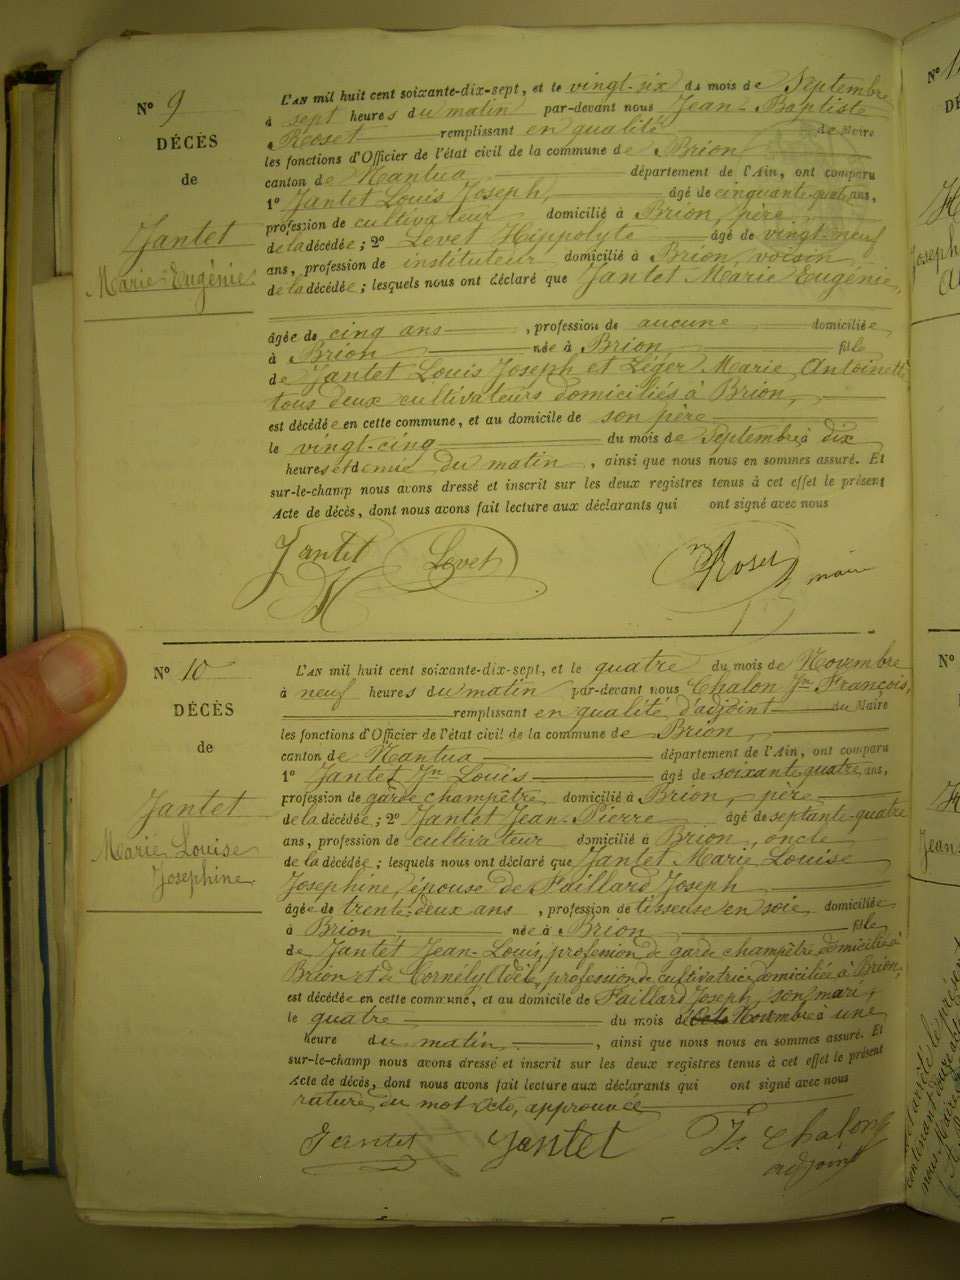 N° 9
DÉCÈS
de
Jantet
Marie-Eugénie
L'AN mil huit cent soixante-dix-sept, et le vingt-six du mois de Septembre
à sept heures du matin par-devant nous Jean-Baptiste
Roset remplissant en qualité de Maire
les fonctions d'Officier de l'état civil de la commune de Brion
canton de Nantua département de l'Ain, ont comparu
1° Jantet Louis Joseph, âgé de cinquante-quatre ans,
profession de cultivateur domicilié à Brion, père
de la décédée ; 2° Levet Hippolyte âgé de vingt-neuf
ans, profession de instituteur domicilié à Brion, voisin
de la décédée ; lesquels nous ont déclaré que Jantet Marie Eugénie,
âgée de cinq ans , profession de aucune domiciliée
à Brion née à Brion fille
de Jantet Louis Joseph et Léger Marie Antoinette
tous deux cultivateurs domiciliés à Brion,
est décédée en cette commune, et au domicile de son père
le vingt-cinq du mois de Septembre à dix
heures et demie du matin , ainsi que nous nous en sommes assuré. Et
sur-le-champ nous avons dressé et inscrit sur les deux registres tenus à cet effet le présent
Acte de décès, dont nous avons fait lecture aux déclarants qui ont signé avec nous
Jantet Levet Roset maire
N° 10
DÉCÈS
de
Jantet
Marie Louise
Josephine
L'AN mil huit cent soixante-dix-sept, et le quatre du mois de Novembre
à neuf heures du matin par-devant nous Chalon Jn François,
remplissant en qualité d'adjoint du Maire
les fonctions d'Officier de l'état civil de la commune de Brion,
canton de Nantua département de l'Ain, ont comparu
1° Jantet Jn Louis âgé de soixante quatre ans,
profession de garde champêtre domicilié à Brion, père
de la décédée ; 2° Jantet Jean-Pierre âgé de septante-quatre
ans, profession de cultivateur domicilié à Brion, oncle
de la décédée ; lesquels nous ont déclaré que Jantet Marie Louise
Josephine, épouse de Faillard Joseph
âgée de trente-deux ans , profession de tisseuse en soie domiciliée
à Brion née à Brion fille
de Jantet Jean-Louis, profession de garde champêtre domicilié à
Brion et de Cornély profession de cultivatrice domiciliée à Brion,
est décédée en cette commune, et au domicile de Faillard Joseph, son mari,
le quatre du mois de Novembre à une
heure du matin , ainsi que nous nous en sommes assuré. Et
sur-le-champ nous avons dressé et inscrit sur les deux registres tenus à cet effet le présent
Acte de décès, dont nous avons fait lecture aux déclarants qui ont signé avec nous
rature du mot octo, approuvée
Jantet Jantet Chalon
adjoint
N°
N°